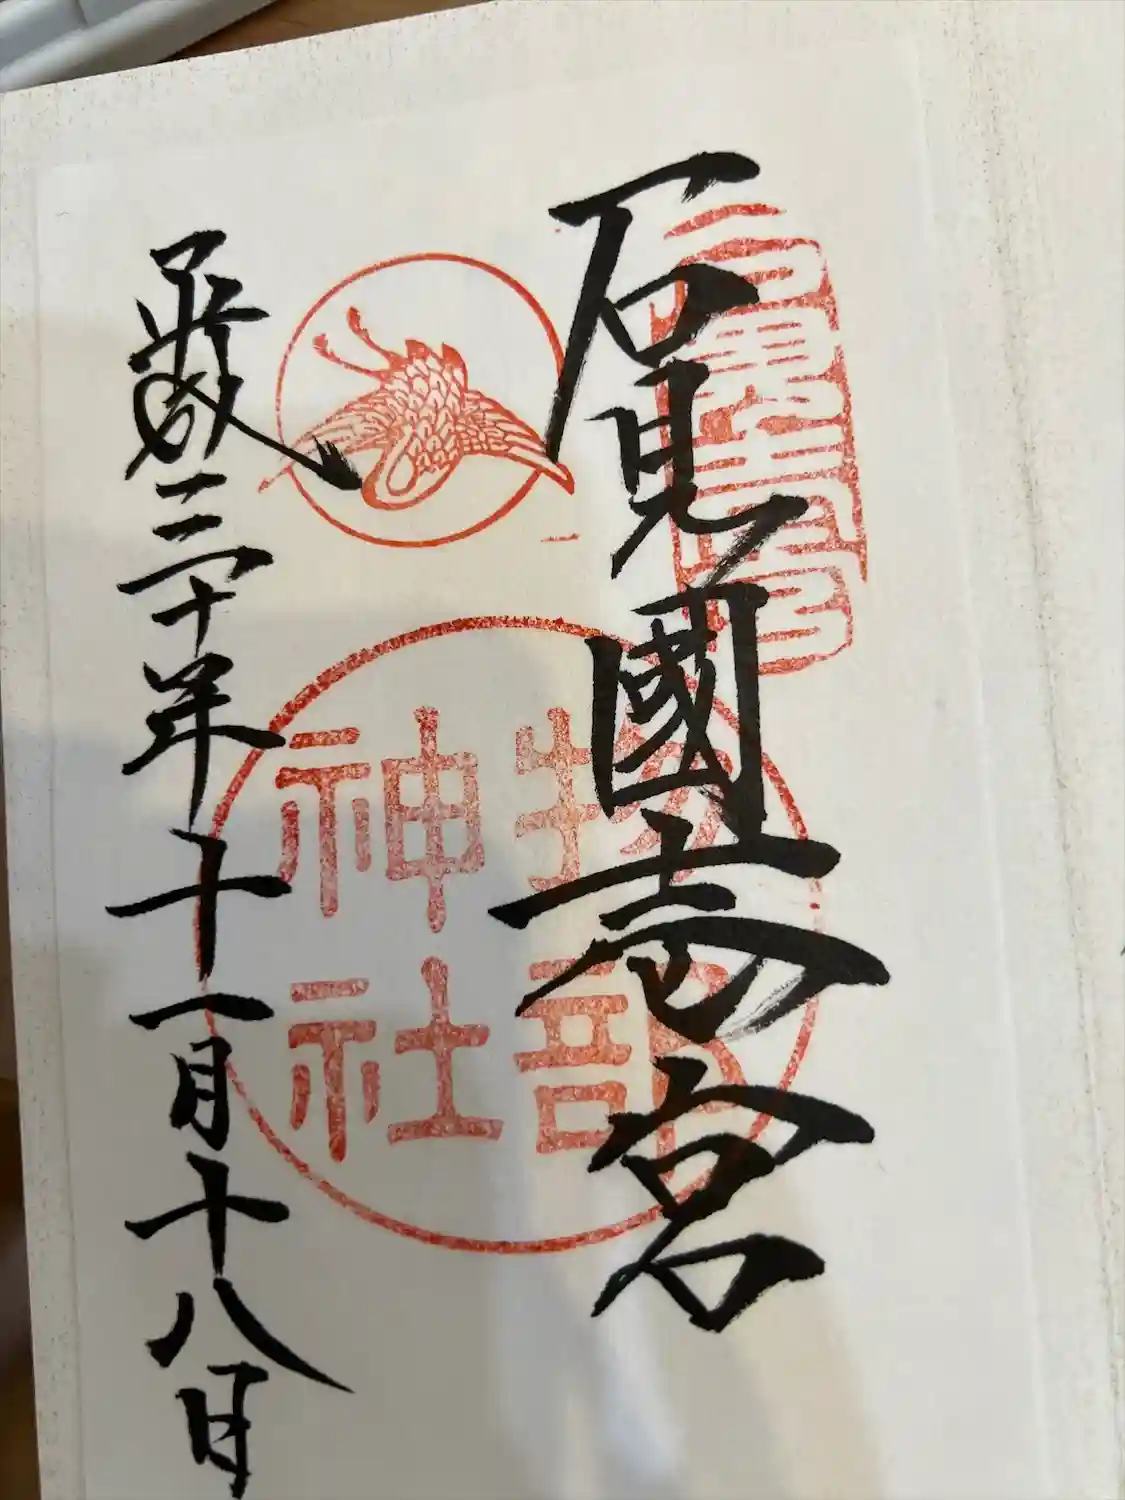 石見國壱宮
石見国一宮
物部
神社
平成三十年十一月十八日